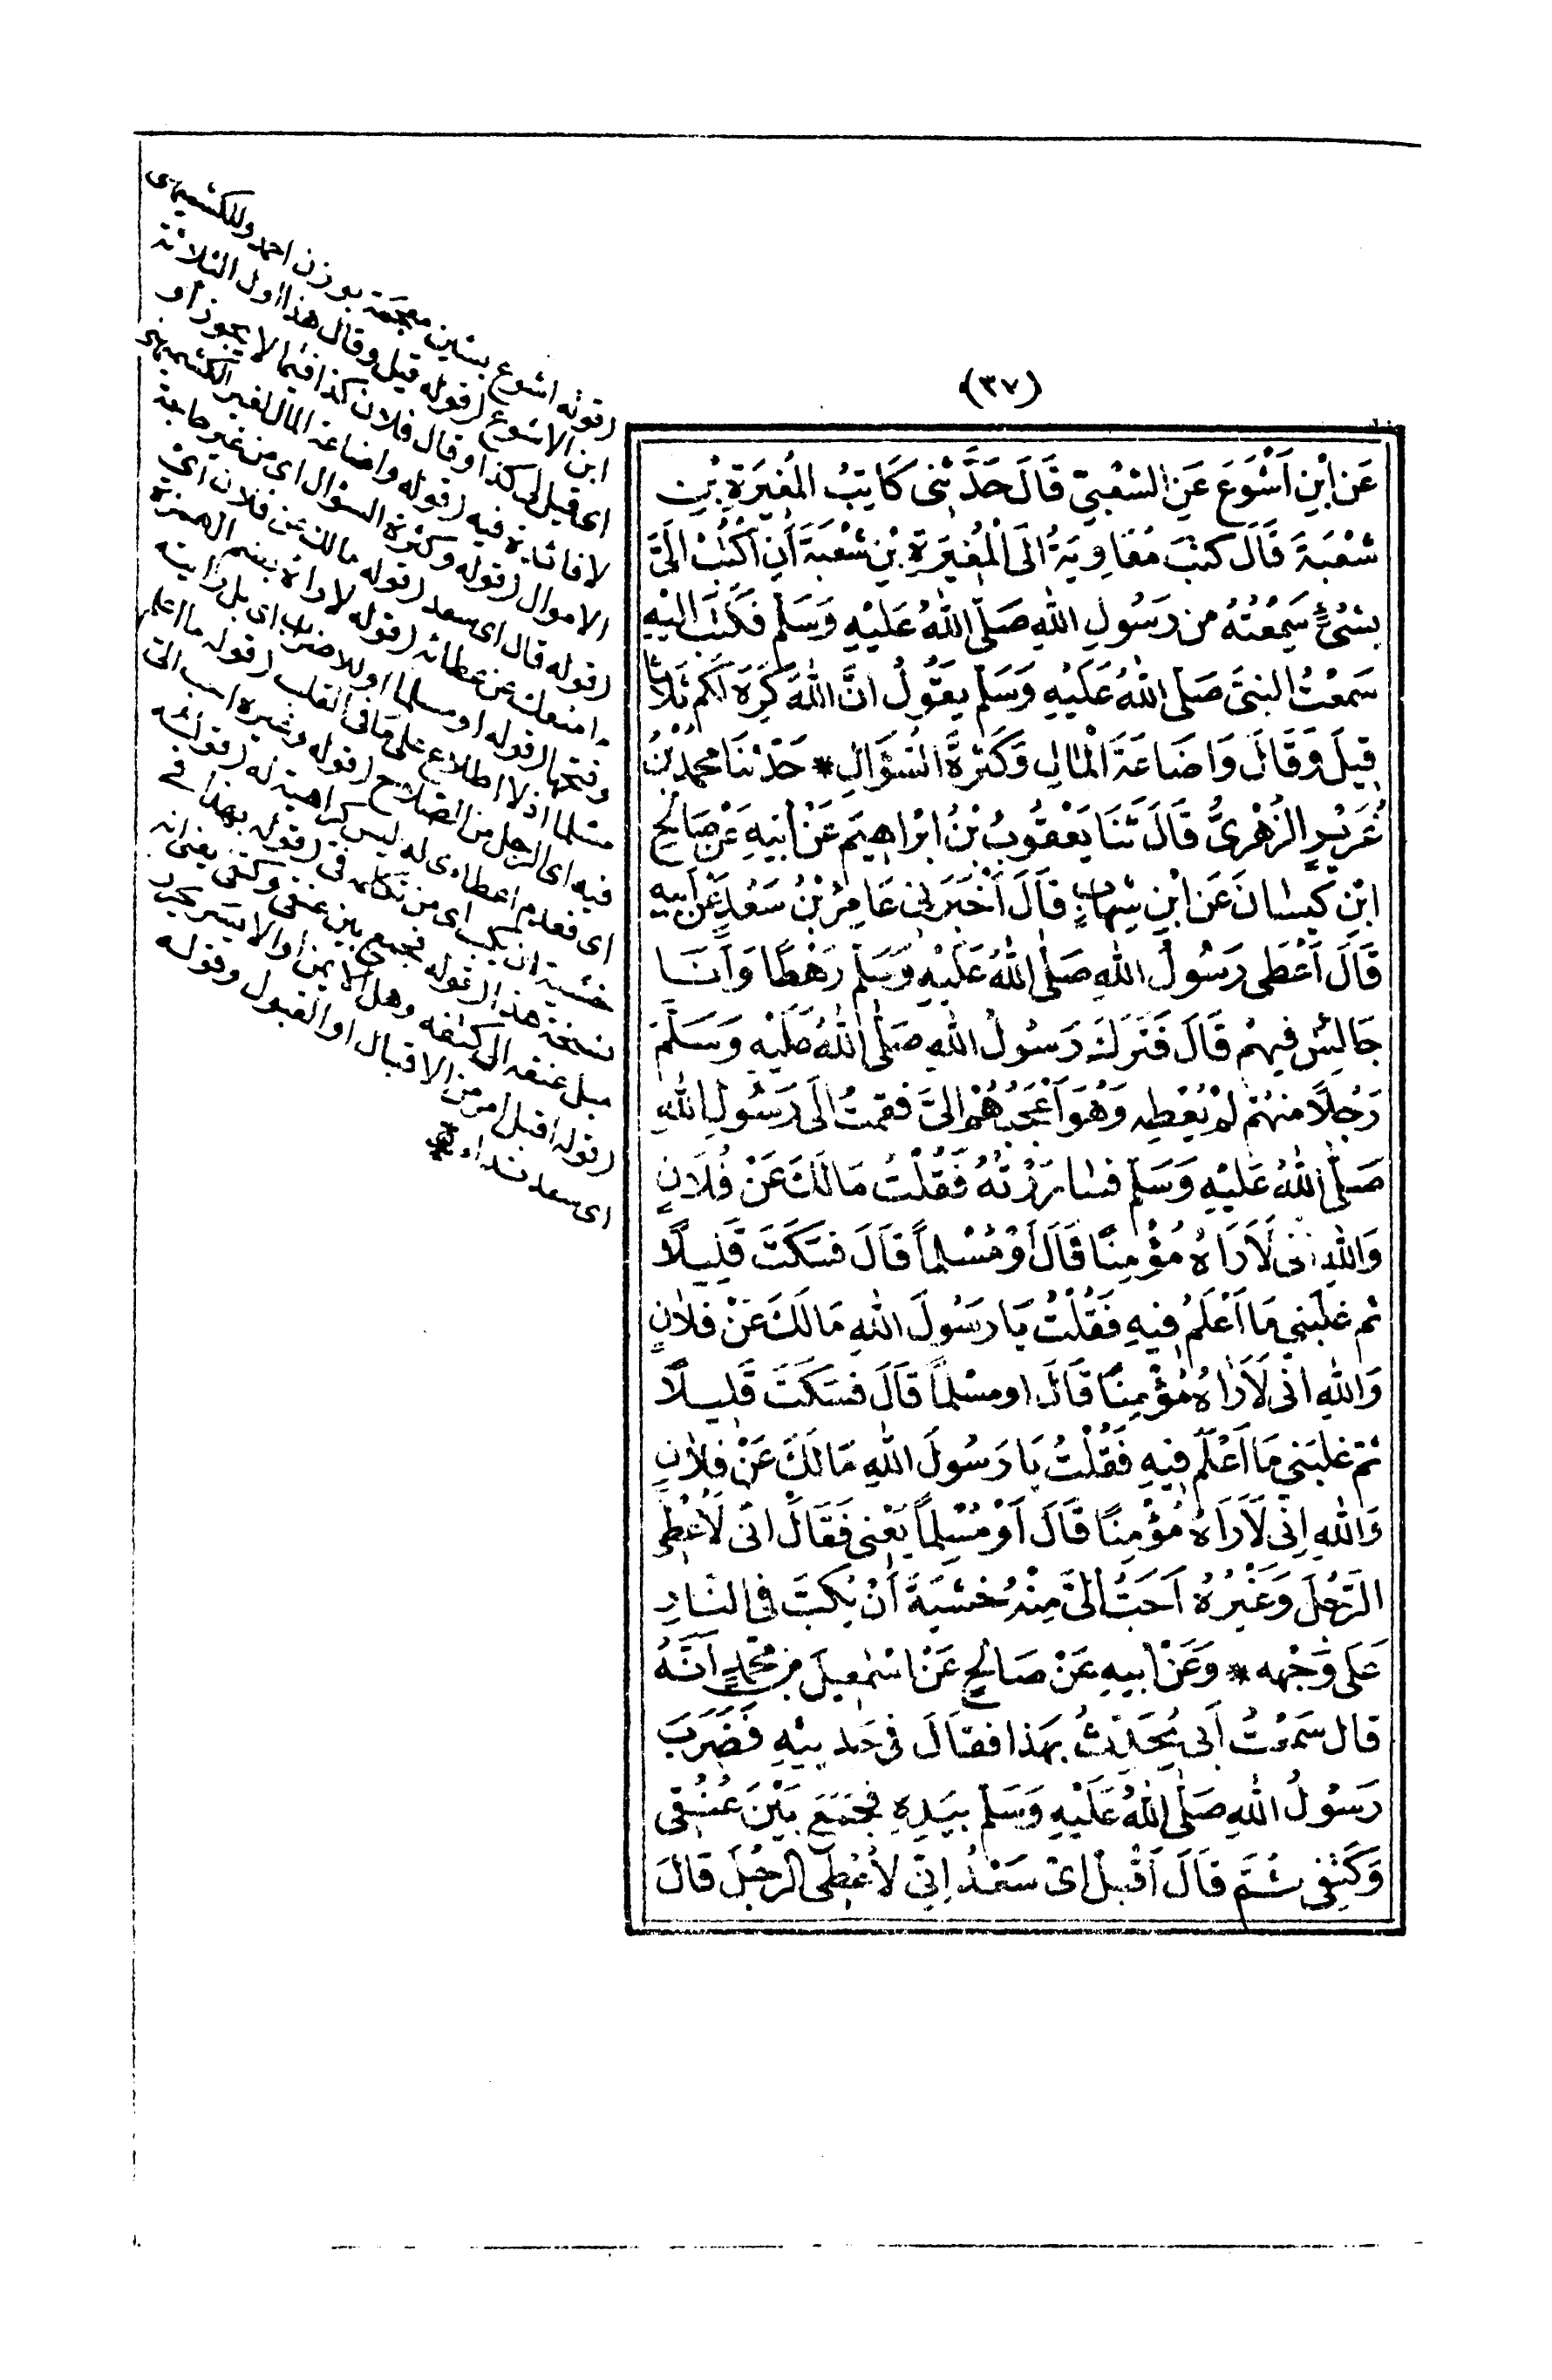 (٣٧)
عَنِ ابْنِ أَشْوَعَ عَنِ الشَّعْبِيِّ قَالَ حَدَّثَنِي كَاتِبُ الْمُغِيرَةِ بْنِ
شُعْبَةَ قَالَ كَتَبَ مُعَاوِيَةُ اِلَى الْمُغِيرَةِ بْنِ شُعْبَةَ أَنِ اكْتُبْ اِلَيَّ
بِشَيْءٍ سَمِعْتَهُ مِن رَسُولِ اللهِ صَلَّى اللهُ عَلَيْهِ وَسَلَّم فَكَتَبَ اِلَيْهِ
سَمِعْتُ النبيَّ صَلى اللهُ عَلَيْهِ وَسَلم يَقُولُ انَّ اللهَ كَرِهَ لَكُم ثَلَاثًا
قِيلَ وَقَالَ وَاضَاعَةَ الْمَالِ وَكَثْرَةَ السُّؤَالِ * حَدَّثَنَا محمدُ بْنُ
غُرَيْرٍ الزُّهْرِيُّ قَالَ ثَنَا يَعْقُوبُ بْنُ ابْرَاهِيمَ عَنْ اَبِيهِ عَنْ صَالِحِ
ابْنِ كَيْسَانَ عَنِ ابْنِ شِهَابٍ قَالَ أَخْبَرَنِي عَامِرُ بْنُ سَعْدٍ عَنْ اَبِيهِ
قَالَ أَعْطَى رَسُولُ اللهِ صَلَّى اللهُ عَلَيْهِ وَسَلم رَهْطًا وَأَنَا
جَالِسٌ فِيهِمْ قَالَ فَتَرَكَ رَسُولُ اللهِ صَلَّى اللهُ عَلَيْهِ وَسَلَّمَ
رَجُلًا مِنْهُمْ لَمْ يُعْطِهِ وَهُوَ أَعْجَبُهُمْ اِلَيَّ فقمتُ اِلَى رَسُولِ اللهِ
صَلَّى اللهُ عَلَيْهِ وَسَلَّم فَسَارَرْتُهُ فَقُلْتُ مَا لَكَ عَنْ فُلَانٍ
وَاللهِ انى لَأَرَاهُ مُؤْمِنًا قَالَ أَوْ مُسْلِماً قَالَ فَسَكَتَ قَلِيلًا
ثم غَلَبَنِي مَا اَعْلَمُ فِيهِ فَقُلْتُ يَا رَسُولَ اللهِ مَا لَكَ عَنْ فلانٍ
وَاللهِ انى لَأَرَاهُ مُؤْمِنًا قَالَ او مسْلماً قَالَ فَسَكَتَ قَلِيلًا
ثمَّ غَلَبَنِي مَا اَعْلَمُ فِيهِ فَقُلْتُ يَا رَسُولَ اللهِ مَا لَكَ عَنْ فلَانٍ
وَاللهِ اِنِّى لَأَرَاهُ مُؤْمِنًا قَالَ أَوْ مُسْلِماً يَعْنِى فَقَالَ انّى لَأُعْطِى
الرَّجُلَ وَغَيْرُهُ اَحَبُّ اِلَىَّ مِنْهُ خَشْيَةَ أَنْ يُكَبَّ فى النَّارِ
عَلى وَجْهِه * وَعَنْ اَبِيهِ عَنْ صَالِحٍ عَنْ اسْمٰعِيلَ بن محَمَّدٍ أَنَّهُ
قال سَمِعْتُ أَبى يُحَدِّثُ بهَذا فقالَ فى حَدِيثِهِ فَضَرَبَ
رَسُولُ اللهِ صَلَّى اللهُ عَلَيْهِ وَسَلم بِيَدِهِ فجَمَعَ بَيْنَ عُنُقِى
وَكَتِفِى ثُمَّ قَالَ أَقْبِلْ اىْ سَعْدُ اِنِّى لأُعْطِى الرجُلَ قَالَ
(قوله اشوع بشين معجمة بوزن احمد وللكشميهنى
ابن الاشوع (قوله قيل وقال هذا اول الثلاثة
اى قيل كذا وقال فلان كذا فيما لا يجوز أو
لا فائدة فيه (قوله واضاعة المال لغير الكشميهنى
الاموال (قوله وكثرة السؤال اى من غير حاجة
(قوله قال اى سعد (قوله مالك عن فلان اىْ
امنعك عن عطائه (قوله لاراه بضم الهمزة
وفتحها (قوله او مسلما او للاضراب اى بل رايته
مسلما اذ لا اطلاع على ما فى القلب (قوله ما اعلم
فيه اى الرجل من الصلاح (قوله وغيره احب الىّ
اى فعدم اعطاءى له ليس كراهية له (قوله
خشية ان يكب اى من تكلمه فى (قوله بهذا فى
نسخة هذا (قوله فجمع بين عنقى وكتفى يعنى انه
عنقه الى كتفه وهل الايمن او الايسر
(قوله اقبل امر من الاقبال او القبول وقوله
اى سعد نداء *